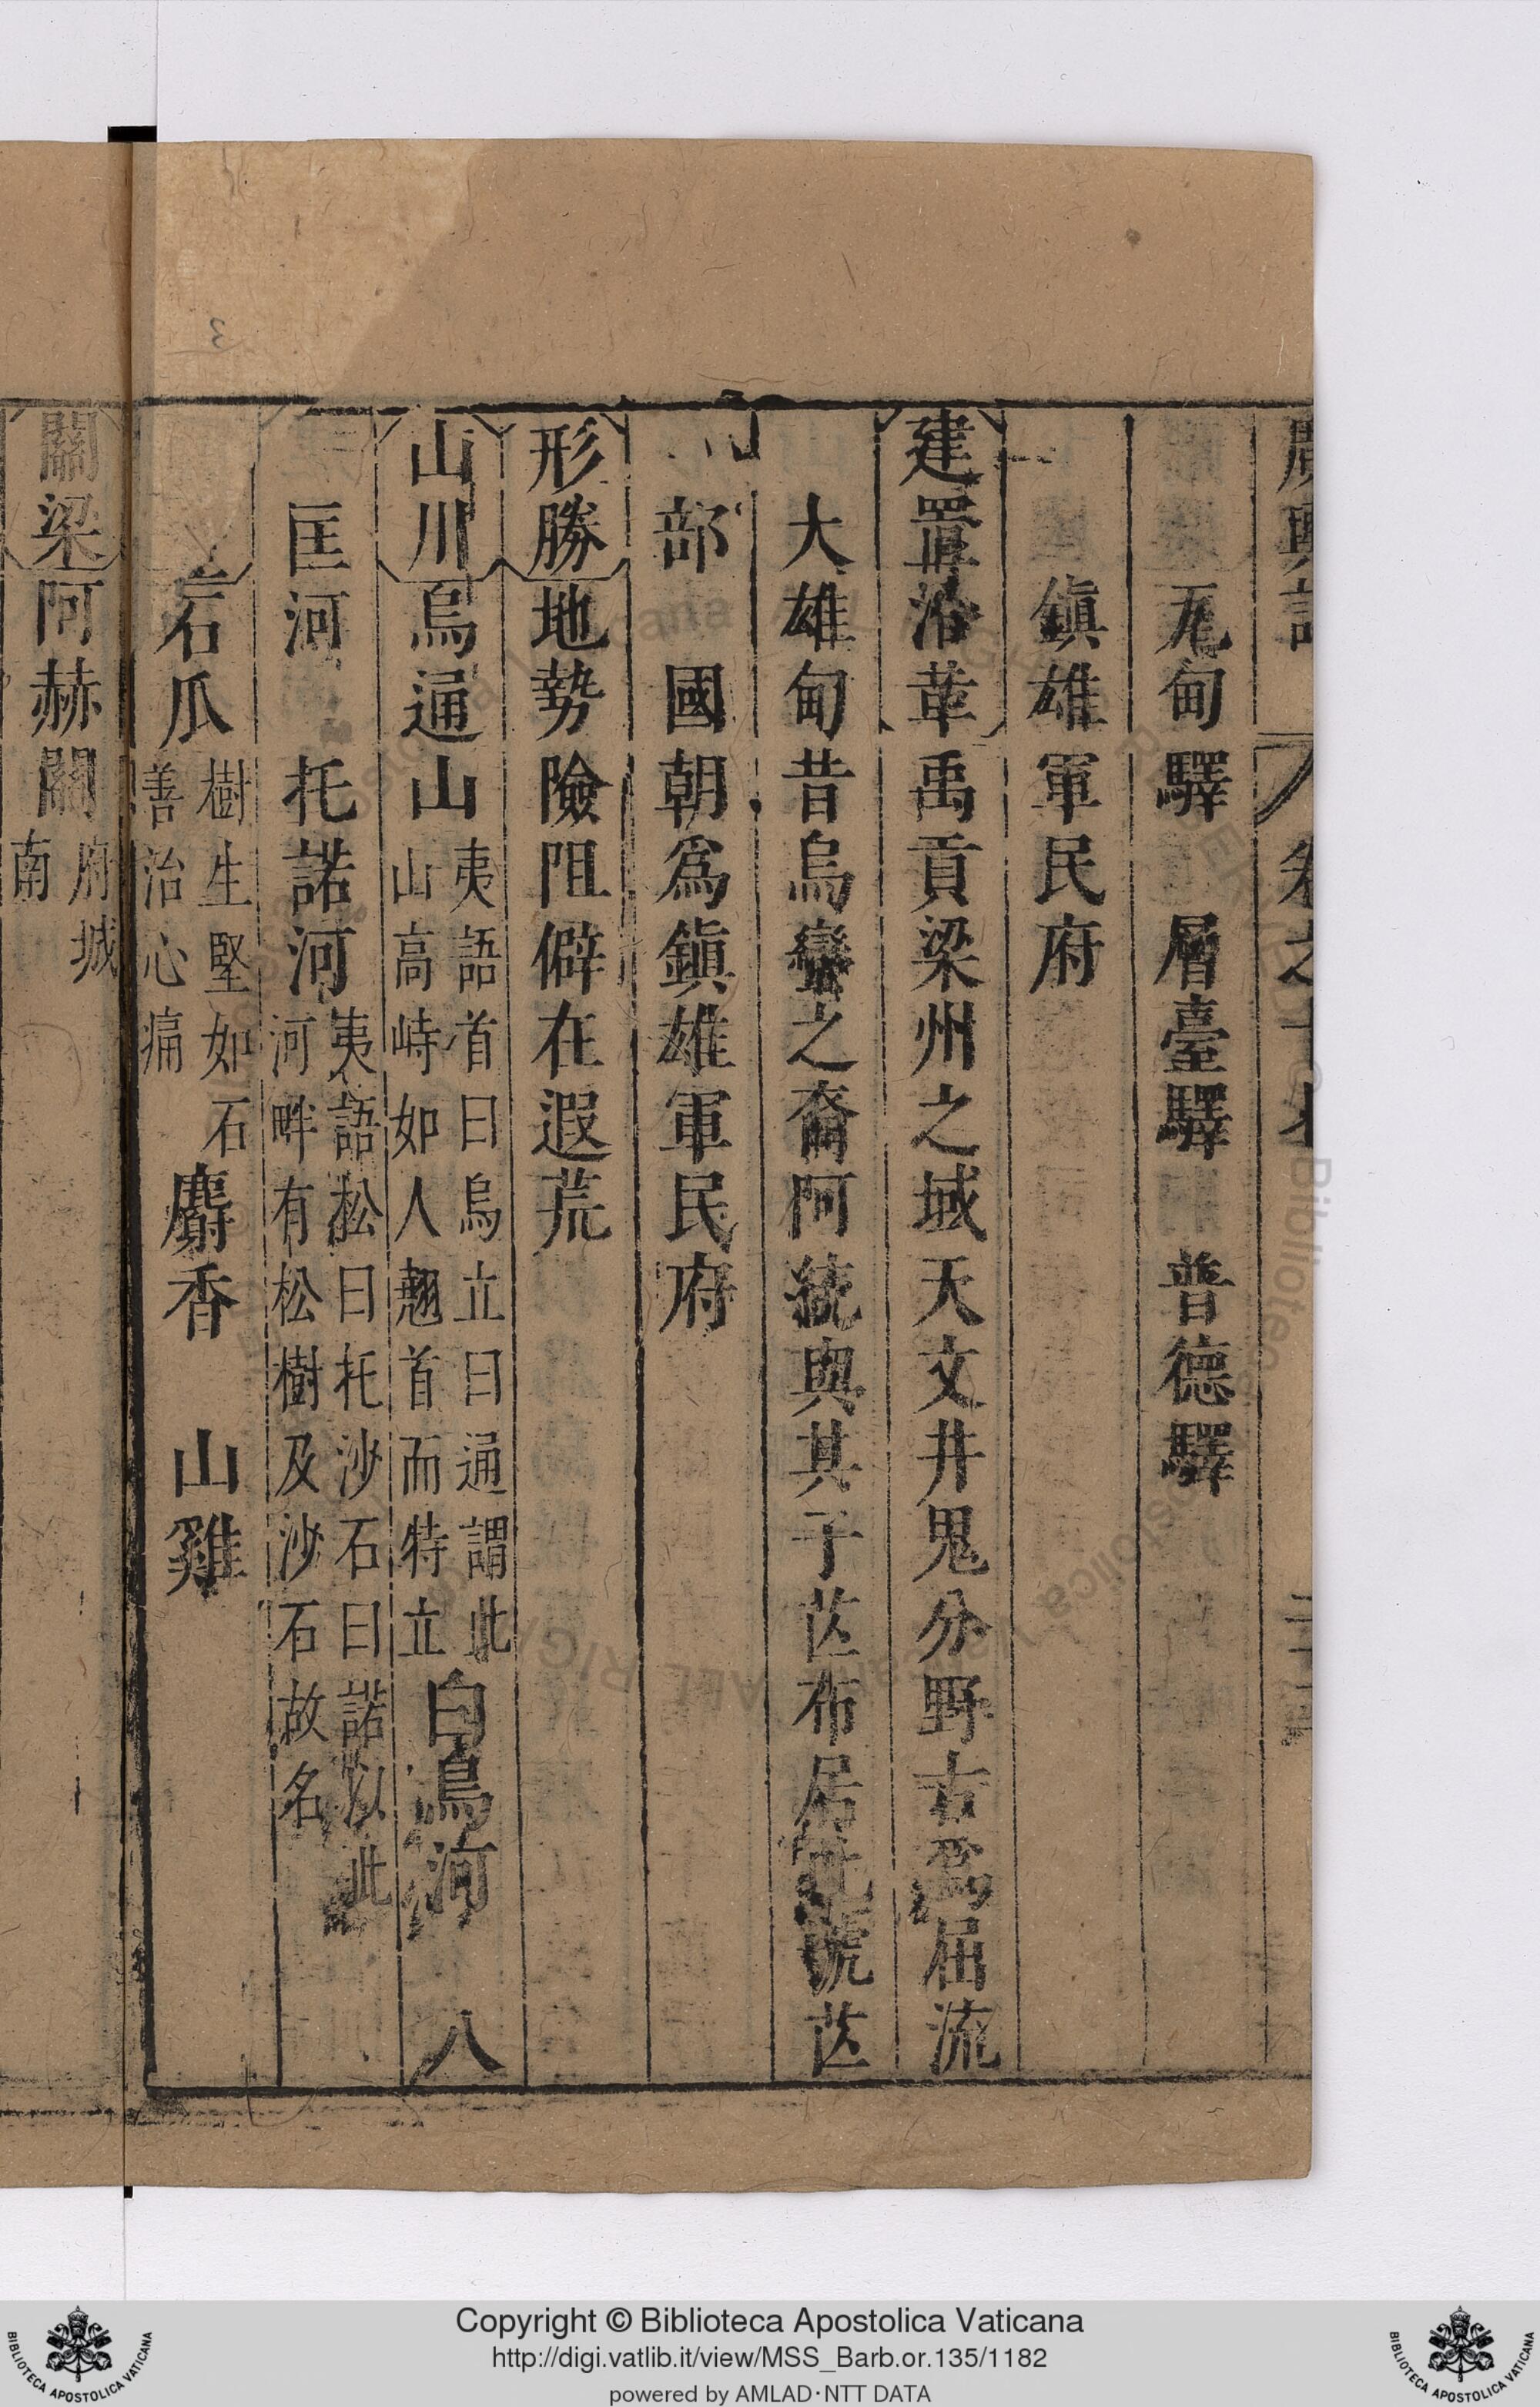 廣輿記 卷之
瓦甸驛 層臺驛 普德驛
鎮雄軍民府
建置沿革 禹貢梁州之域天文井鬼分野古爲屈流
大雄甸昔烏蠻之裔阿統與其子芒布居此號芒
部 國朝爲鎮雄軍民府
形勝 地勢險阻僻在遐荒
山川 烏通山 夷語首曰烏立曰通謂此山高峙如人翹首而特立 白鳥河 八
匡河 托諾河 夷語松曰托沙石曰諾以此河畔有松樹及沙石故名
石瓜 樹生堅如石善治心痛 麝香 山雞
關梁 阿赫關 府城南
Copyright © Biblioteca Apostolica Vaticana
http://digi.vatlib.it/view/MSS_Barb.or.135/1182
powered by AMLAD·NTT DATA
BIBLIOTECA APOSTOLICA VATICANA
BIBLIOTECA APOSTOLICA VATICANA